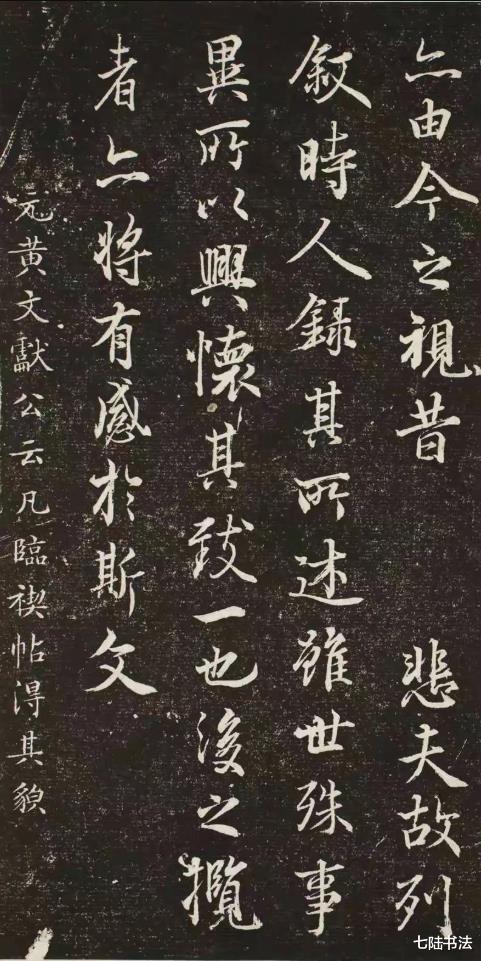 亦由今之視昔 悲夫故列
叙時人録其所述雖世殊事
異所以興懷其致一也後之攬
者亦将有感於斯文
元黄文獻公云凡臨禊帖得其貌
七陆书法